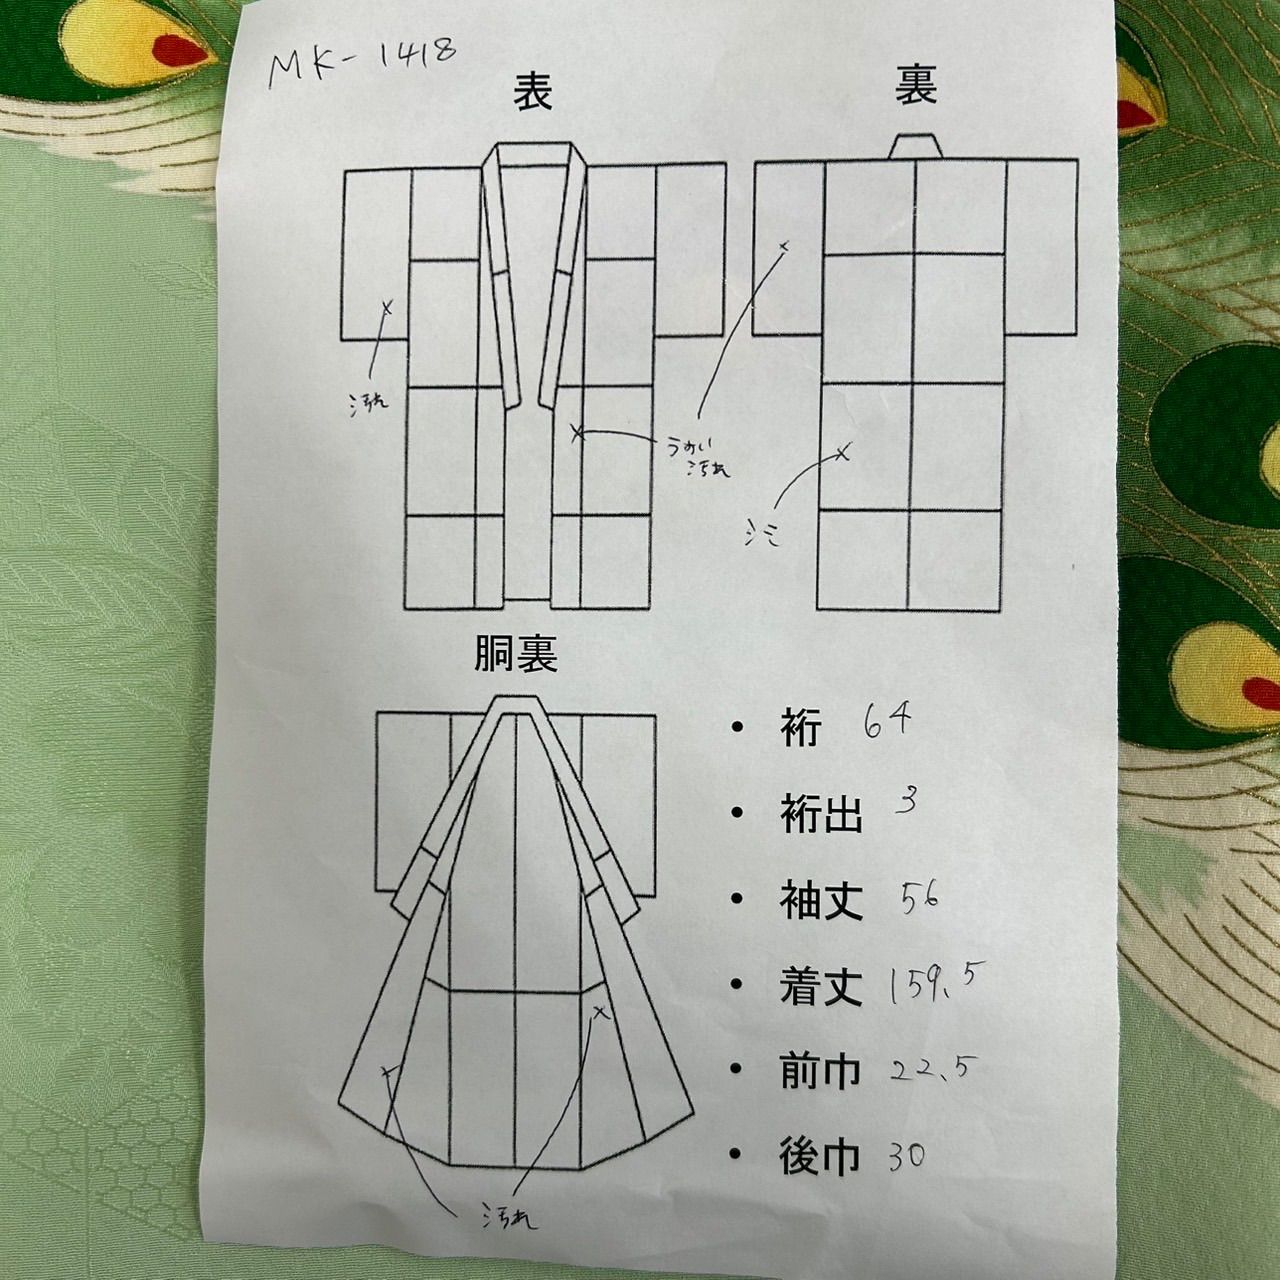 MK-1418
表
裏
汚れ
うすい
汚れ
シミ
胴裏
・ 裄 64
・ 裄出 3
・ 袖丈 56
・ 着丈 159.5
・ 前巾 22.5
・ 後巾 30
汚れ